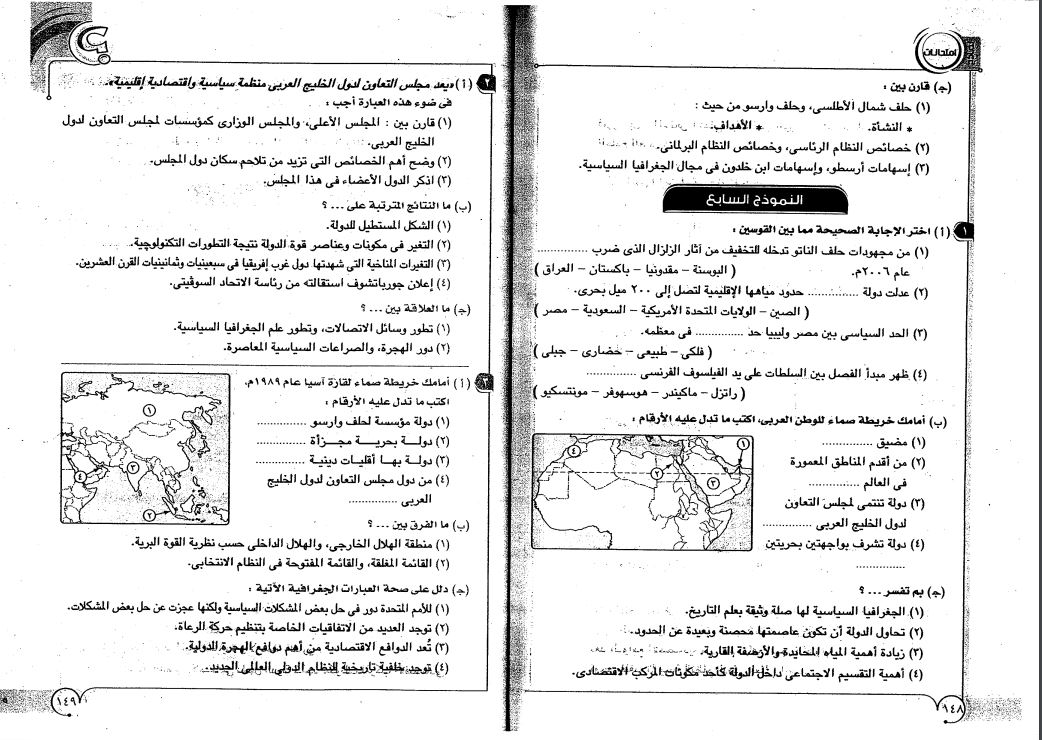 امتحانات
(جـ) قارن بين :
(١) حلف شمال الأطلسى، وحلف وارسو من حيث :
* النشأة. * الأهداف.
(٢) خصائص النظام الرئاسى، وخصائص النظام البرلمانى.
(٣) إسهامات أرسطو، وإسهامات ابن خلدون فى مجال الجغرافيا السياسية.
النموذج السابع
١ (أ) اختر الإجابة الصحيحة مما بين القوسين :
(١) من مجهودات حلف الناتو تدخله للتخفيف من آثار الزلزال الذى ضرب ..............
عام ٢٠٠٦م. ( البوسنة - مقدونيا - باكستان - العراق )
(٢) عدلت دولة .............. حدود مياهها الإقليمية لتصل إلى ٢٠٠ ميل بحرى.
( الصين - الولايات المتحدة الأمريكية - السعودية - مصر )
(٣) الحد السياسى بين مصر وليبيا حد .............. فى معظمه.
( فلكى - طبيعى - حضارى - جبلى )
(٤) ظهر مبدأ الفصل بين السلطات على يد الفيلسوف الفرنسى ..............
( راتزل - ماكيندر - هوسهوفر - مونتسكيو )
(ب) أمامك خريطة صماء للوطن العربى، اكتب ما تدل عليه الأرقام :
(١) مضيق ..............
(٢) من أقدم المناطق المعمورة
فى العالم ..............
(٣) دولة تنتمى لمجلس التعاون
لدول الخليج العربى ..............
(٤) دولة تشرف بواجهتين بحريتين
..............
١
٤
٢
٣
(جـ) بم تفسر ... ؟
(١) الجغرافيا السياسية لها صلة وثيقة بعلم التاريخ.
(٢) تحاول الدولة أن تكون عاصمتها محصنة وبعيدة عن الحدود.
(٣) زيادة أهمية المياه المحايدة والأرصفة القارية.
(٤) أهمية التقسيم الاجتماعى داخل الدولة كأحد مكونات المركب الاقتصادى.
١٤٨
٢ (أ) «يعد مجلس التعاون لدول الخليج العربى منظمة سياسية واقتصادية إقليمية».
فى ضوء هذه العبارة أجب :
(١) قارن بين : المجلس الأعلى، والمجلس الوزارى كمؤسسات لمجلس التعاون لدول
الخليج العربى.
(٢) وضح أهم الخصائص التى تزيد من تلاحم سكان دول المجلس.
(٣) اذكر الدول الأعضاء فى هذا المجلس.
(ب) ما النتائج المترتبة على ... ؟
(١) الشكل المستطيل للدولة.
(٢) التغير فى مكونات وعناصر قوة الدولة نتيجة التطورات التكنولوچية.
(٣) التغيرات المناخية التى شهدتها دول غرب إفريقيا فى سبعينيات وثمانينيات القرن العشرين.
(٤) إعلان جورباتشوف استقالته من رئاسة الاتحاد السوڤيتى.
(جـ) ما العلاقة بين ... ؟
(١) تطور وسائل الاتصالات، وتطور علم الجغرافيا السياسية.
(٢) دور الهجرة، والصراعات السياسية المعاصرة.
٣ (أ) أمامك خريطة صماء لقارة آسيا عام ١٩٨٩م.
اكتب ما تدل عليه الأرقام :
(١) دولة مؤسسة لحلف وارسو ..............
(٢) دولة بحرية مجزأة ..............
(٣) دولة بها أقليات دينية ..............
(٤) من دول مجلس التعاون لدول الخليج
العربى ..............
١
٣
٤
٢
(ب) ما الفرق بين ... ؟
(١) منطقة الهلال الخارجى، والهلال الداخلى حسب نظرية القوة البرية.
(٢) القائمة المغلقة، والقائمة المفتوحة فى النظام الانتخابى.
(جـ) دلل على صحة العبارات الجغرافية الآتية :
(١) للأمم المتحدة دور فى حل بعض المشكلات السياسية ولكنها عجزت عن حل بعض المشكلات.
(٢) توجد العديد من الاتفاقيات الخاصة بتنظيم حركة الرعاة.
(٣) تُعد الدوافع الاقتصادية من أهم دوافع الهجرة الدولية.
(٤) توجد خلفية تاريخية للنظام الدولى العالمى الجديد.
١٤٩